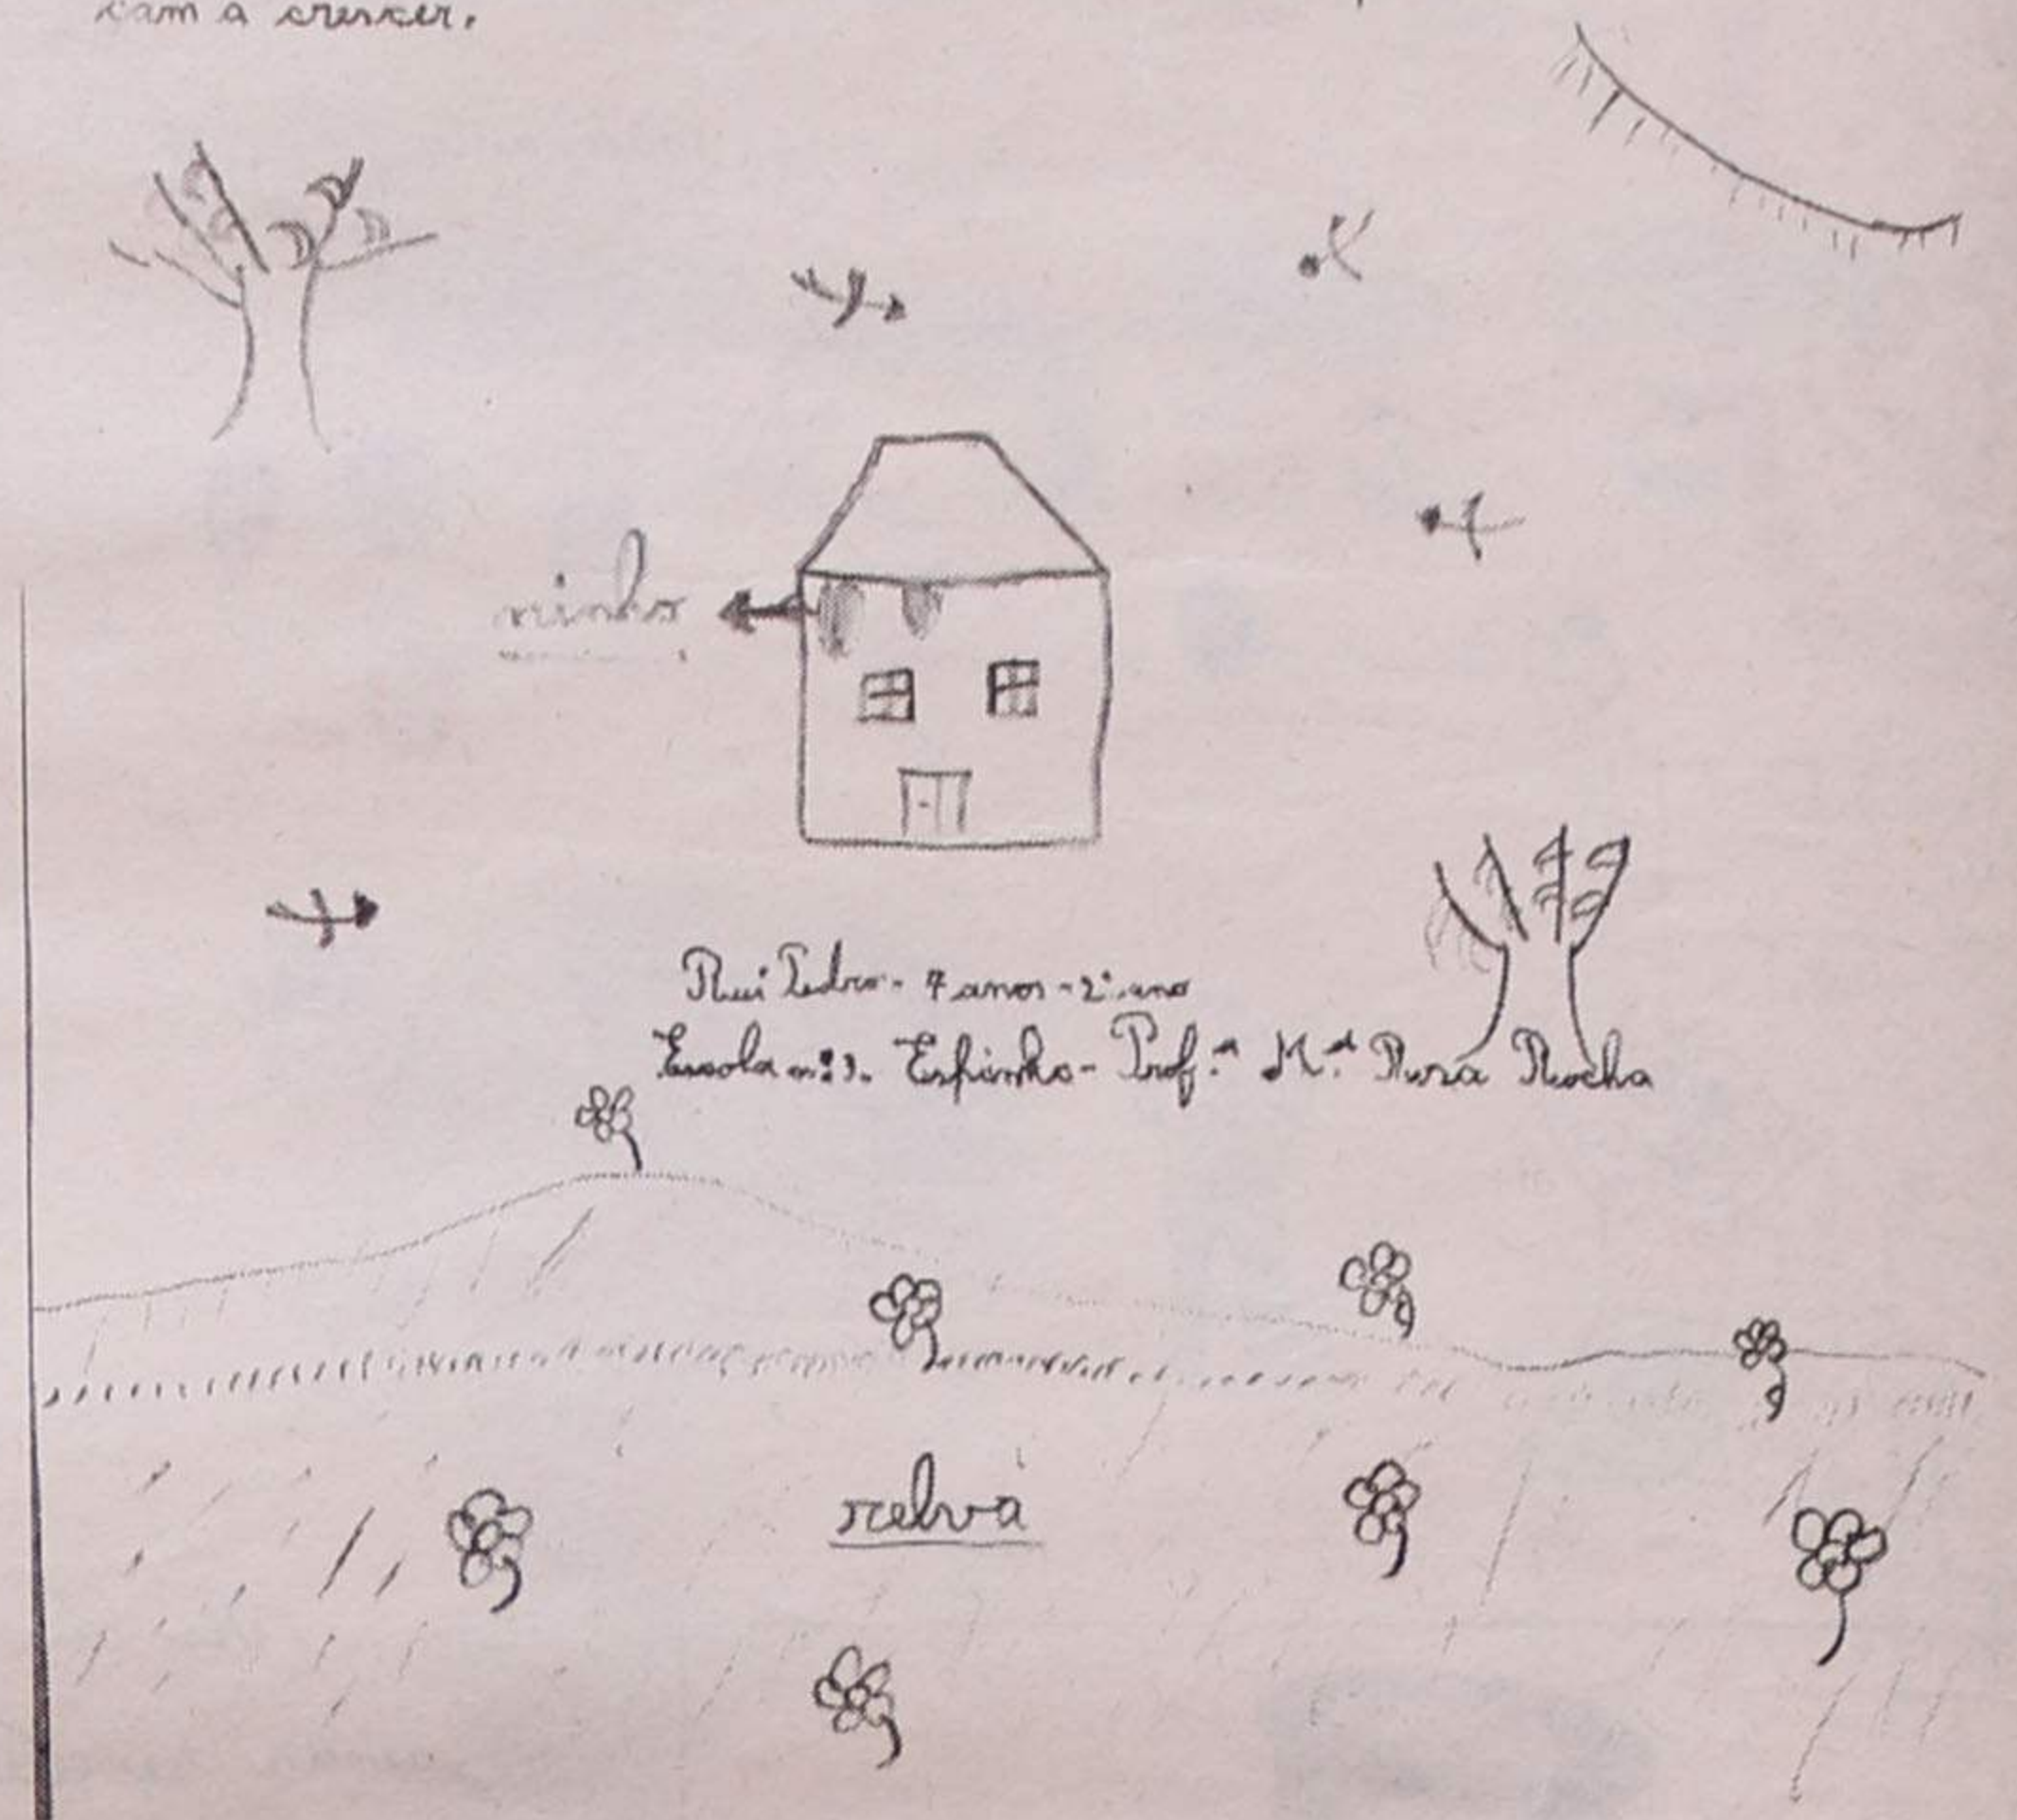 çam a crescer.
ninho
Rui Pedro - 7 anos - 2º ano
Escola nº 3. Espinho - Prof.ª M.ª Rosa Rocha
relva